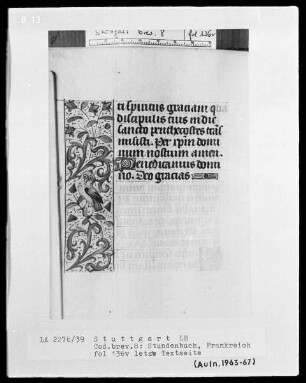 B 13
Stuttgart brev. 8
fol 136v
ti spiritus graciam qua
discipulis tuis in die
sancto penthecostes tras
misisti. Per xpm domi
num nostrum amen.
Benedicamus domi
no. Deo gracias
LA 2276/39 Stuttgart LB
Cod.brev.8: Stundenbuch, Frankreich
fol 136v letzte Textseite
(Aufn.1963-67)